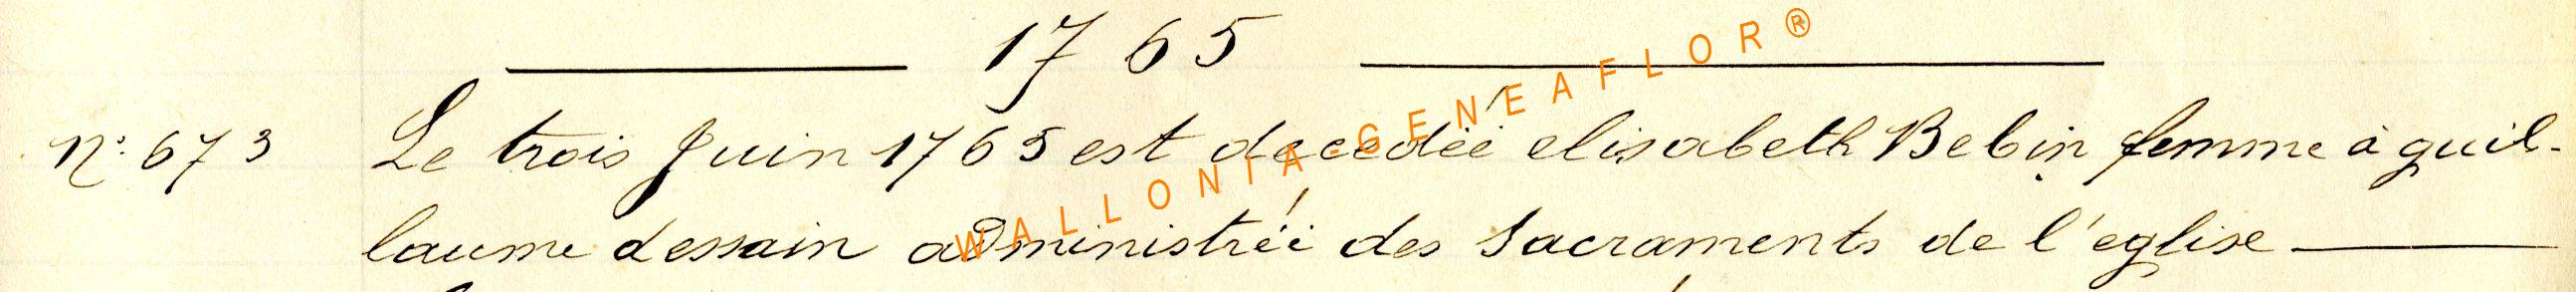 1765
N° 673 Le trois Juin 1765 est decedéé elisabeth Bebin femme à guil-
laume dessain administréé des Sacraments de l'eglise
WALLONIA-GENEAFLOR®